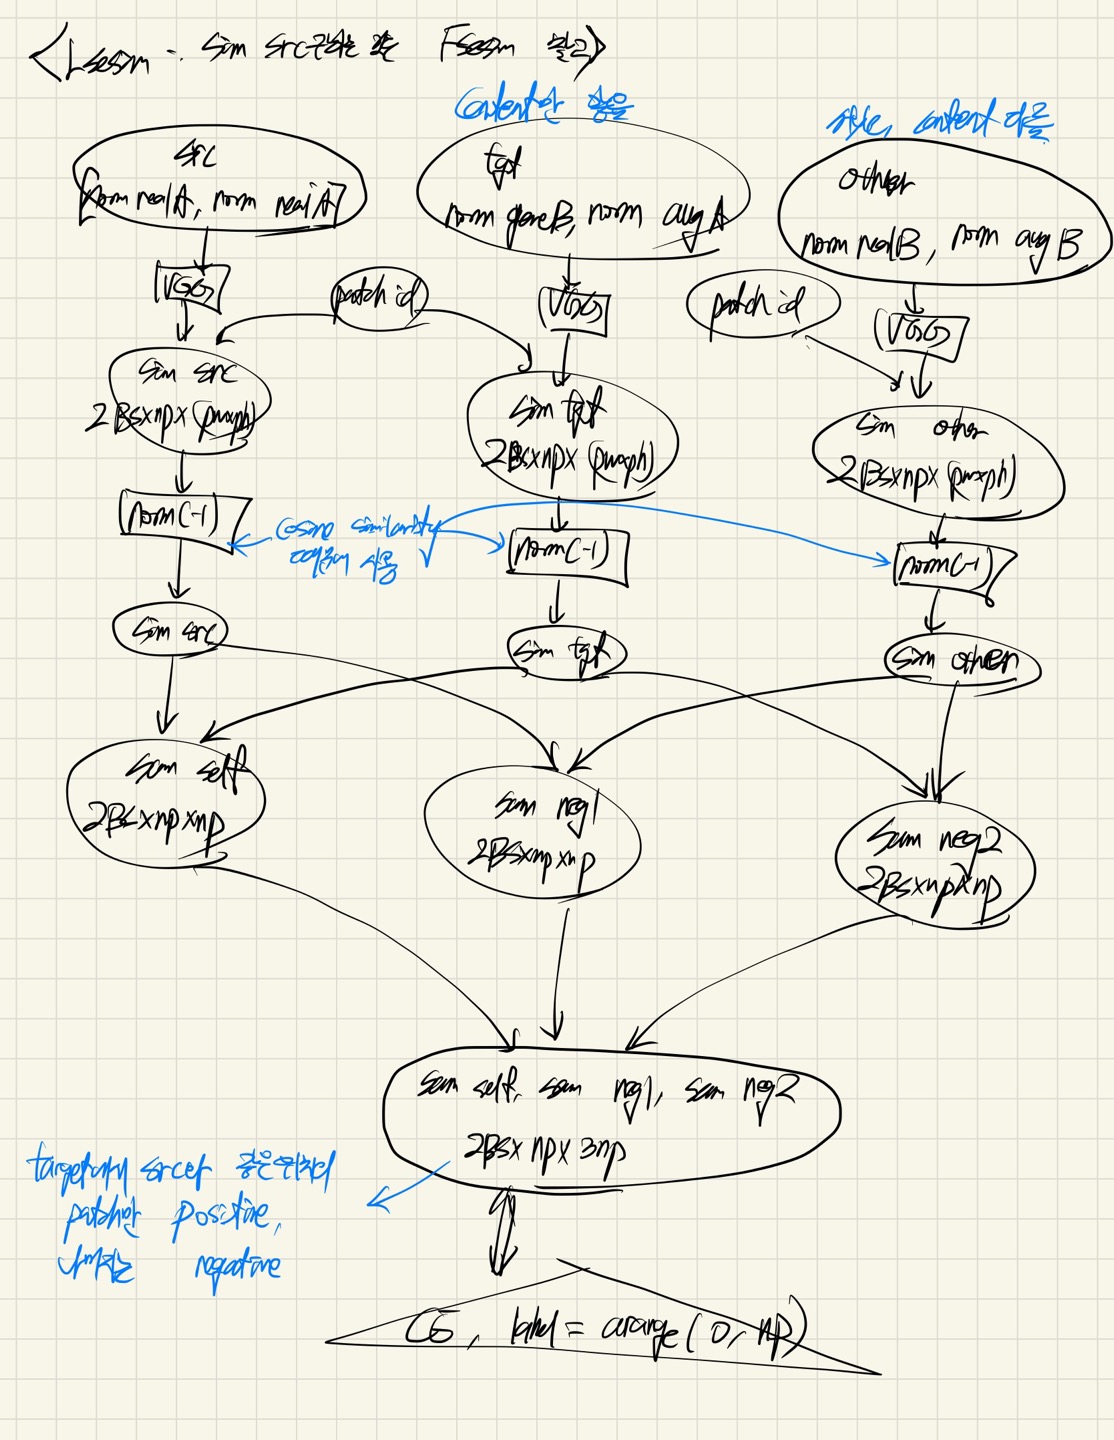 <Lsesim : sim src 구하는 Fsesim 참고>
content만 같음
style, content 다름
src
[norm realA, norm realA]
tgt
norm gene B, norm aug A
other
norm real B, norm aug B
VGG
patch id
VGG
patch id
VGG
sim src
2Bs×np×(pw×ph)
sim tgt
2Bs×np×(pw×ph)
sim other
2Bs×np×(pw×ph)
norm(-1)
cosine similarity
때문에 사용
norm(-1)
norm(-1)
sim src
sim tgt
sim other
sim self
2Bs×np×np
sim neg1
2Bs×np×np
sim neg2
2Bs×np×np
sim self, sim neg1, sim neg2
2Bs× np× 3np
target에서 src와 같은 위치의
patch만 positive,
나머지는 negative
CE, label = arange(0, np)